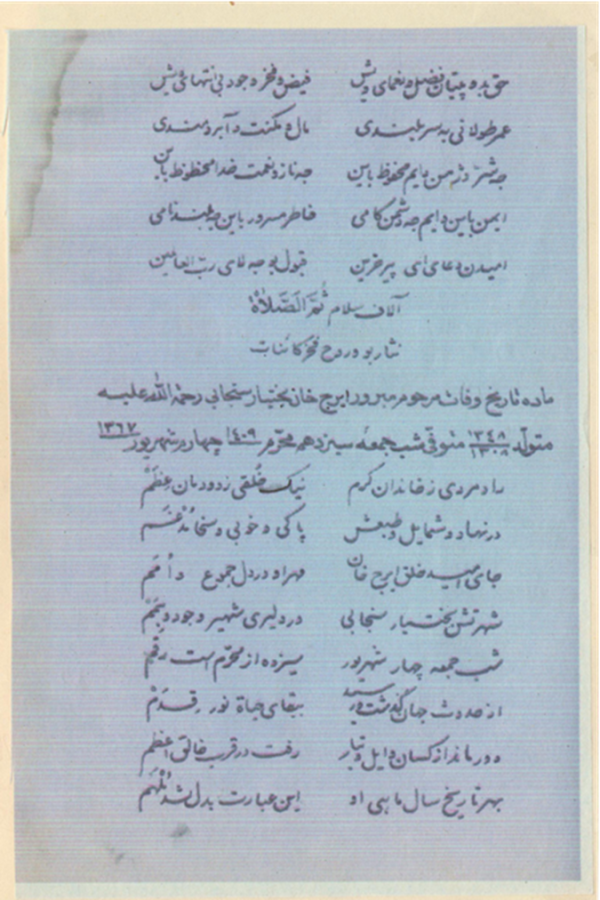 حق بده پیتان فضل و نعمای ویش فیض و فخر و جود بی انتهائی ویش
عمر طولانی به سربلندی مال و مکنت و آبرومندی
جه شر دژمن دایم محفوظ باین جه ناز و نعمت خدا محظوظ باین
ایمن باین دایم جه دشمن کامی خاطر مسرور باین جه بلندنامی
امیدن دعای ای پیر حزین قبول بو جه لای رب العالمین
آلاف سلام ثُمَّ الصَّلاة
نثار بو و روح فخر کائنات
ماده تاریخ وفات مرحوم مبرور ایرج خان بختیار سنجابی رحمة الله علیه
متولد ۱۳۴۸ / ۱۳۰۸ متوفی شب جمعه سیزدهم محرم ۱۴۰۹ چهارم شهریور ۱۳۶۷
رادمردی ز خاندان کرم نیک خُلقی ز دودمان عِظَم
در نهاد و شمایل و طبعش پاکی و خوبی و سخا مُدْغَم
جای امید خلق ایرج خان مهر او در دل جموع اُمَم
شهرتش بختیار سنجابی در دلیری شهیر و جود و هِمَم
شب جمعه چهار شهریور سیزده از محرّم است رقم
از حدوث جهان گذشت و رسید ببقای حیاة نور قِدَم
دور ماند از کسان و ایل و تبار رفت در قرب خالق اعظم
بهر تاریخ سال ماهی او این عبارت بدل شد مُلْهَم